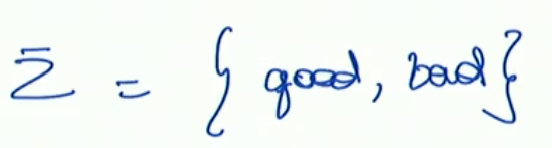 Z̄ = { good, bad}